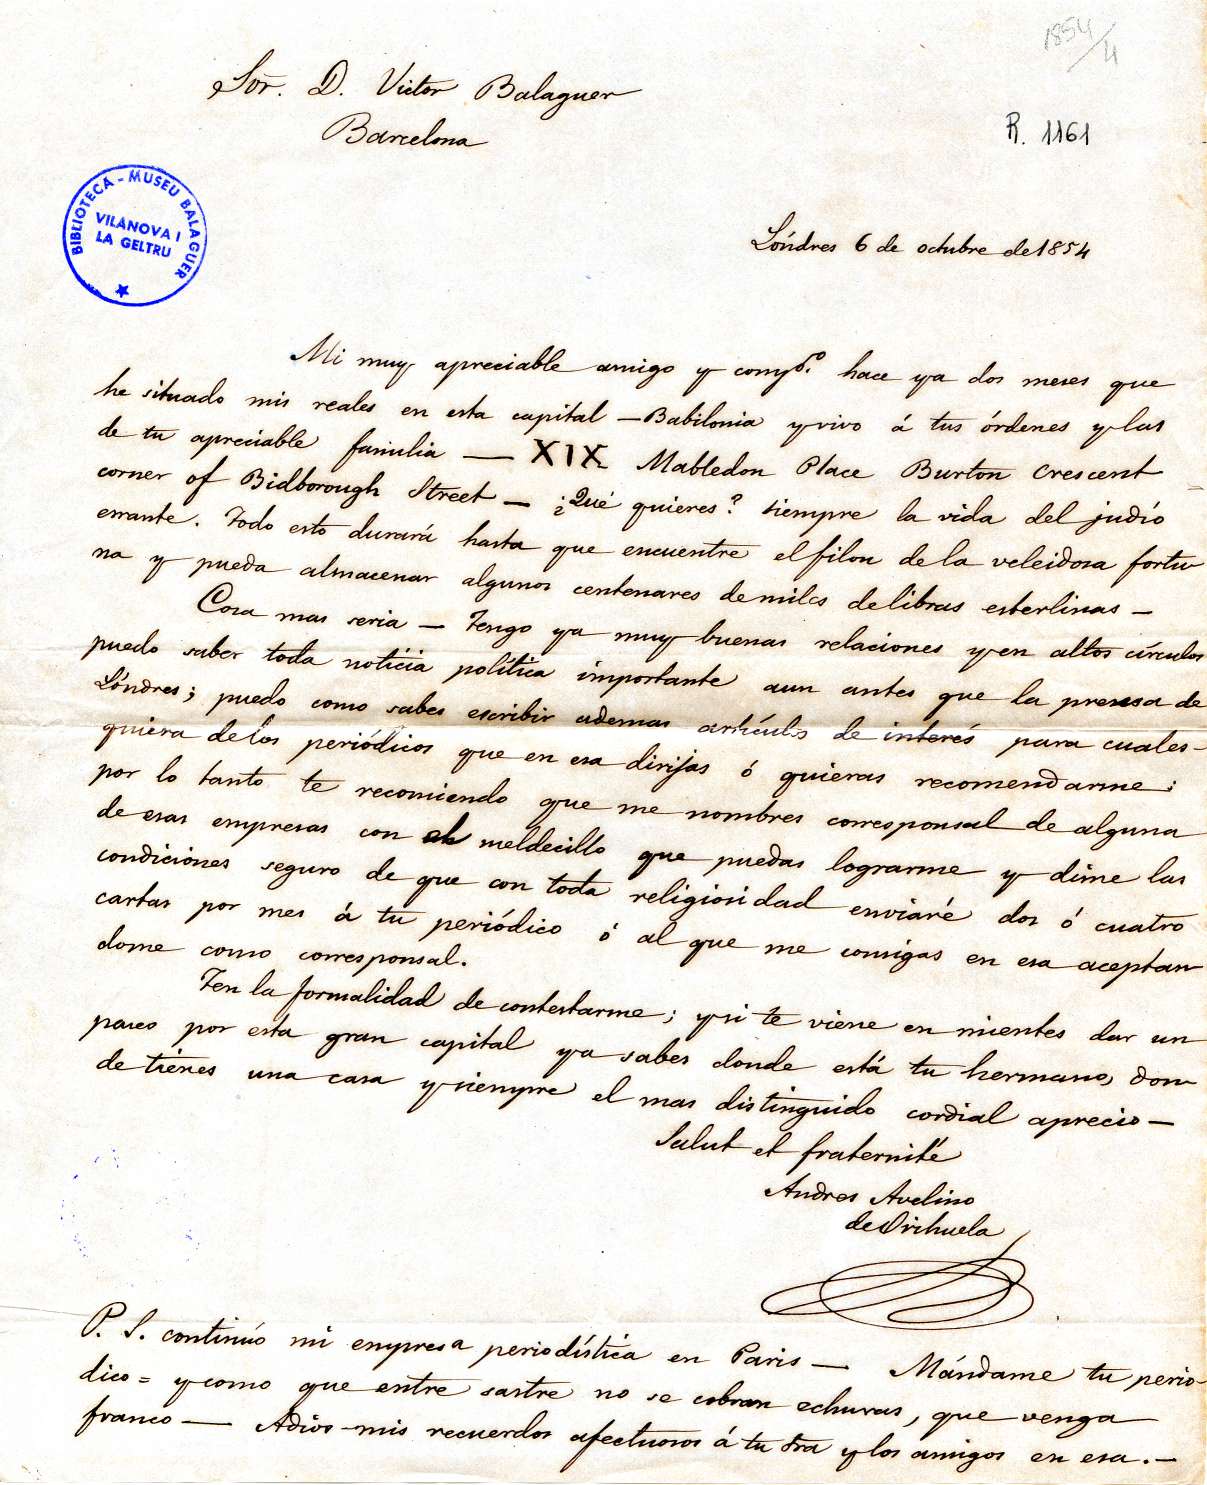 1854/4
Sor. D. Victor Balaguer
Barcelona
R. 1161
BIBLIOTECA - MUSEU BALAGUER
VILANOVA I
LA GELTRU
Lóndres 6 de octubre de 1854
Mi muy apreciable amigo y compo. hace ya dos meses que
he situado mis reales en esta capital — Babilonia y vivo á tus órdenes y las
de tu apreciable familia — XIX Mabledon Place Burton Crescent
corner of Bidborough Street — ¿Qué quieres? siempre la vida del judío
errante. Todo esto durará hasta que encuentre el filon de la veleidosa fortu
na y pueda almacenar algunos centenares de miles de libras esterlinas —
Cosa mas seria — Tengo ya muy buenas relaciones y en altos círculos
puedo saber toda noticia política importante aun antes que la prensa de
Lóndres; puedo como sabes escribir ademas artículos de interés para cuales-
quiera de los periódicos que en esa dirijas ó quieras recomendarme;
por lo tanto te recomiendo que me nombres corresponsal de alguna
de esas empresas con el sueldecillo que puedas lograrme y dime las
condiciones seguro de que con toda religiosidad enviaré dos ó cuatro
cartas por mes á tu periódico ó al que me consigas en esa aceptan
dome como corresponsal.
Ten la formalidad de contestarme; y si te viene en mientes dar un
paseo por esta gran capital ya sabes donde está tu hermano, don
de tienes una casa y siempre el mas distinguido cordial aprecio —
Salut et fraternité
Andres Avelino
de Orihuela
P. S. continúo mi empresa periodística en Paris — Mándame tu perio-
dico = y como que entre sastre no se cobran echuras, que venga
franco — Adios mis recuerdos afectuosos á tu Sra y los amigos en esa. —